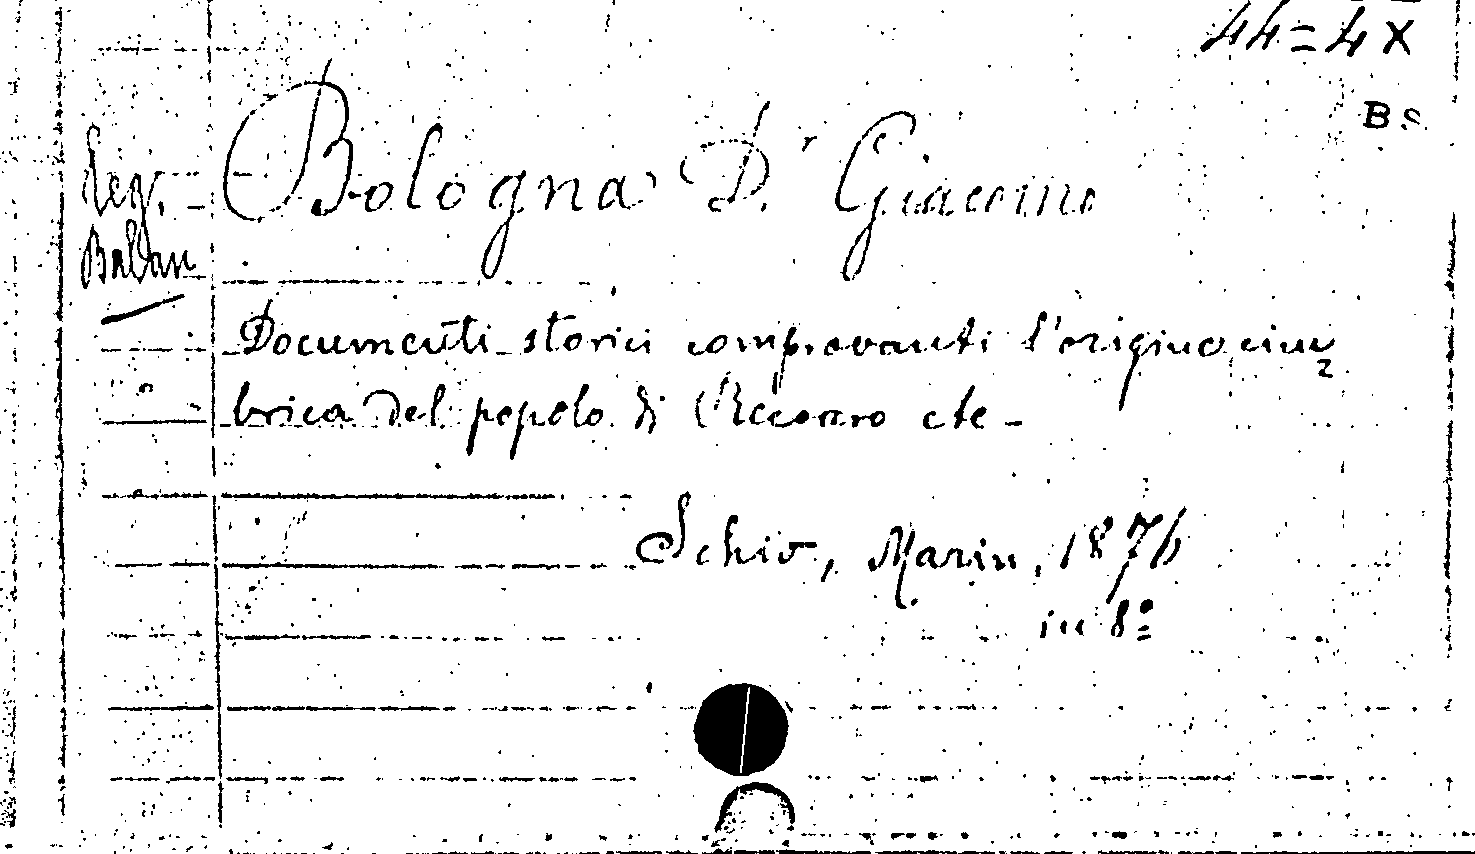 44=4 X
BS
Leg. Baldan
Bologna D.r Giacomo
Documenti storici comprovanti l'origine cim
brica del popolo di Recoaro etc-
Schio, Marin, 1876
in 8º